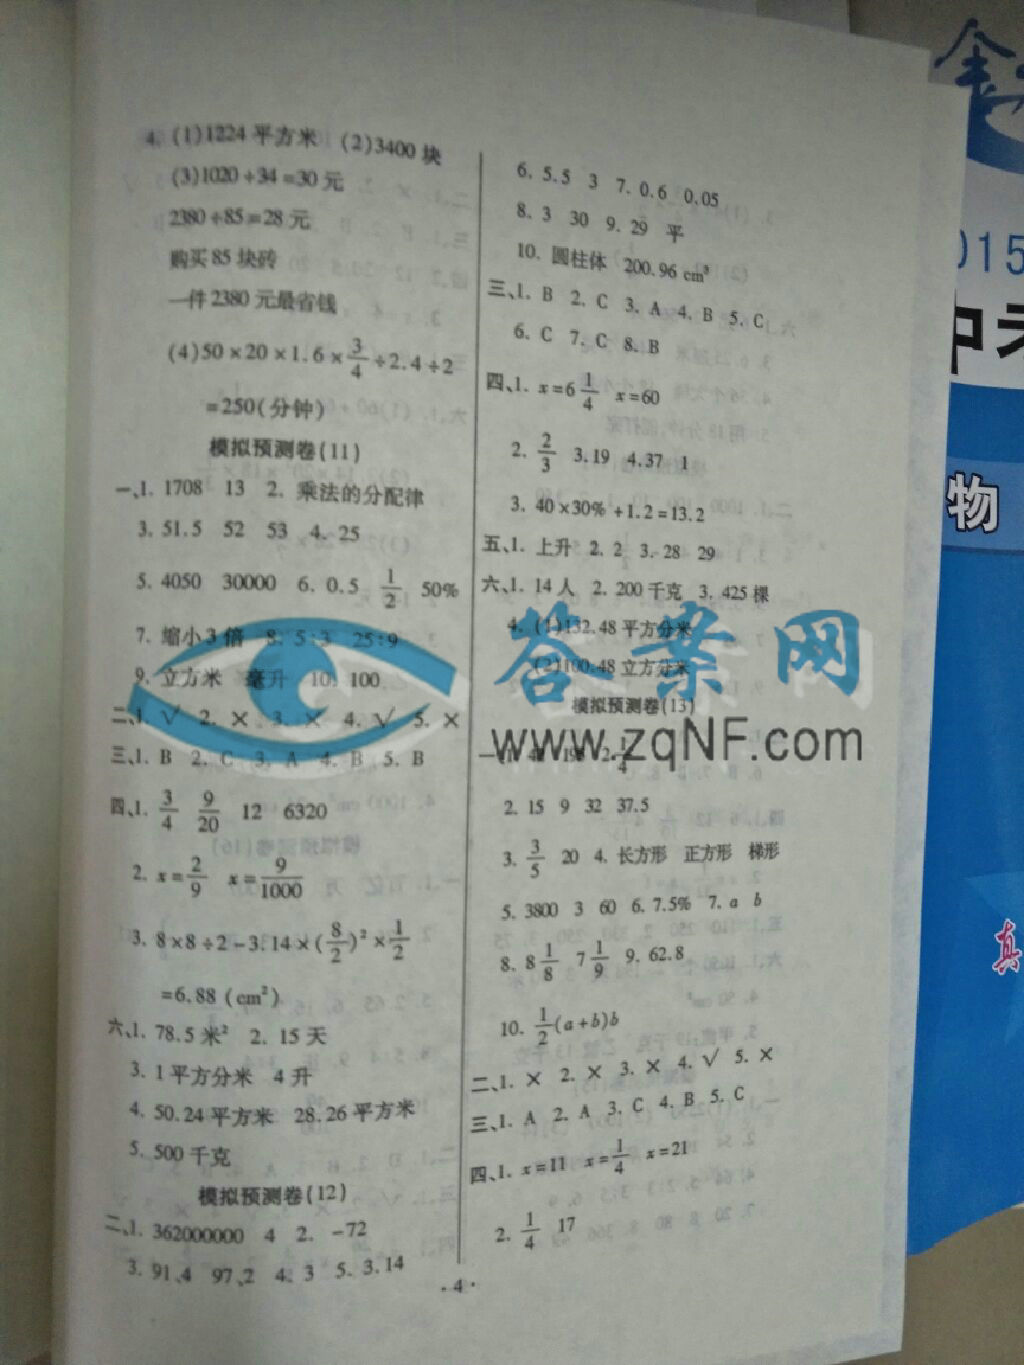 4. (1)1224平方米 (2)3400块
(3)1020÷34=30元
2380÷85=28元
购买85块砖
一件2380元最省钱
(4)50×20×1.6×3/4÷2.4÷2
=250(分钟)
模拟预测卷(11)
一、1. 1708 13 2. 乘法的分配律
3. 51.5 52 53 4. 25
5. 4050 30000 6. 0.5 1/2 50%
7. 缩小3倍 8. 5:3 25:9
9. 立方米 毫升 10. 100
二、1. √ 2. × 3. × 4. √ 5. ×
三、1. B 2. C 3. A 4. B 5. B
四、1. 3/4 9/20 12 6320
2. x=2/9 x=9/1000
3. 8×8÷2-3.14×(8/2)²×1/2
=6.88(cm²)
六、1. 78.5米² 2. 15天
3. 1平方分米 4升
4. 50.24平方米 28.26平方米
5. 500千克
模拟预测卷(12)
二、1. 362000000 4 2. -72
3. 91、4 97、2 4. 3 5. 3.14
6. 5.5 3 7. 0.6 0.05
8. 3 30 9. 29 平
10. 圆柱体 200.96 cm³
三、1. B 2. C 3. A 4. B 5. C
6. C 7. C 8. B
四、1. x=6 1/4 x=60
2. 2/3 3.19 4.37 1
3. 40×30%+1.2=13.2
五、1. 上升 2. 2 3. -28 29
六、1. 14人 2. 200千克 3. 425棵
4. (1)132.48平方分米
(2)100.48立方分米
模拟预测卷(13)
2. 15 9 32 37.5
3. 3/5 20 4. 长方形 正方形 梯形
5. 3800 3 60 6. 7.5% 7. a b
8. 8 1/8 7 1/9 9. 62.8
10. 1/2(a+b)b
二、1. × 2. × 3. × 4. √ 5. ×
三、1. A 2. A 3. C 4. B 5. C
四、1. x=11 x=1/4 x=21
2. 1/4 17
·4·
答案网
www.zqNF.com
金
015
中考
物
真